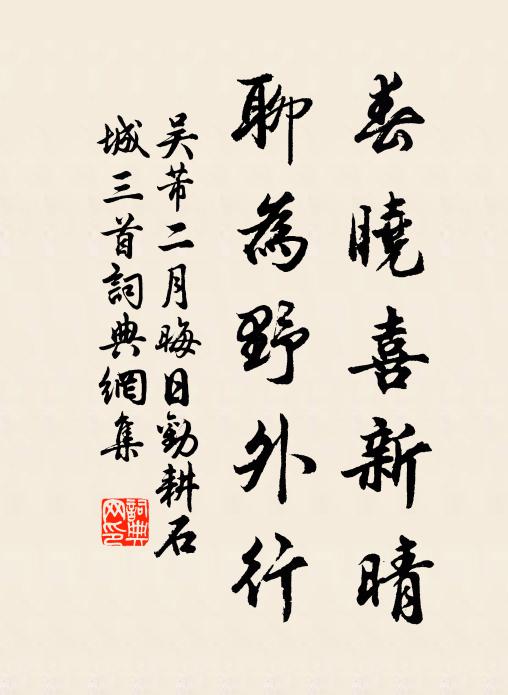 春曉喜新晴
聊為野外行
吴芾二月晦日勸耕石
城三首詞典網集
詞典
网印